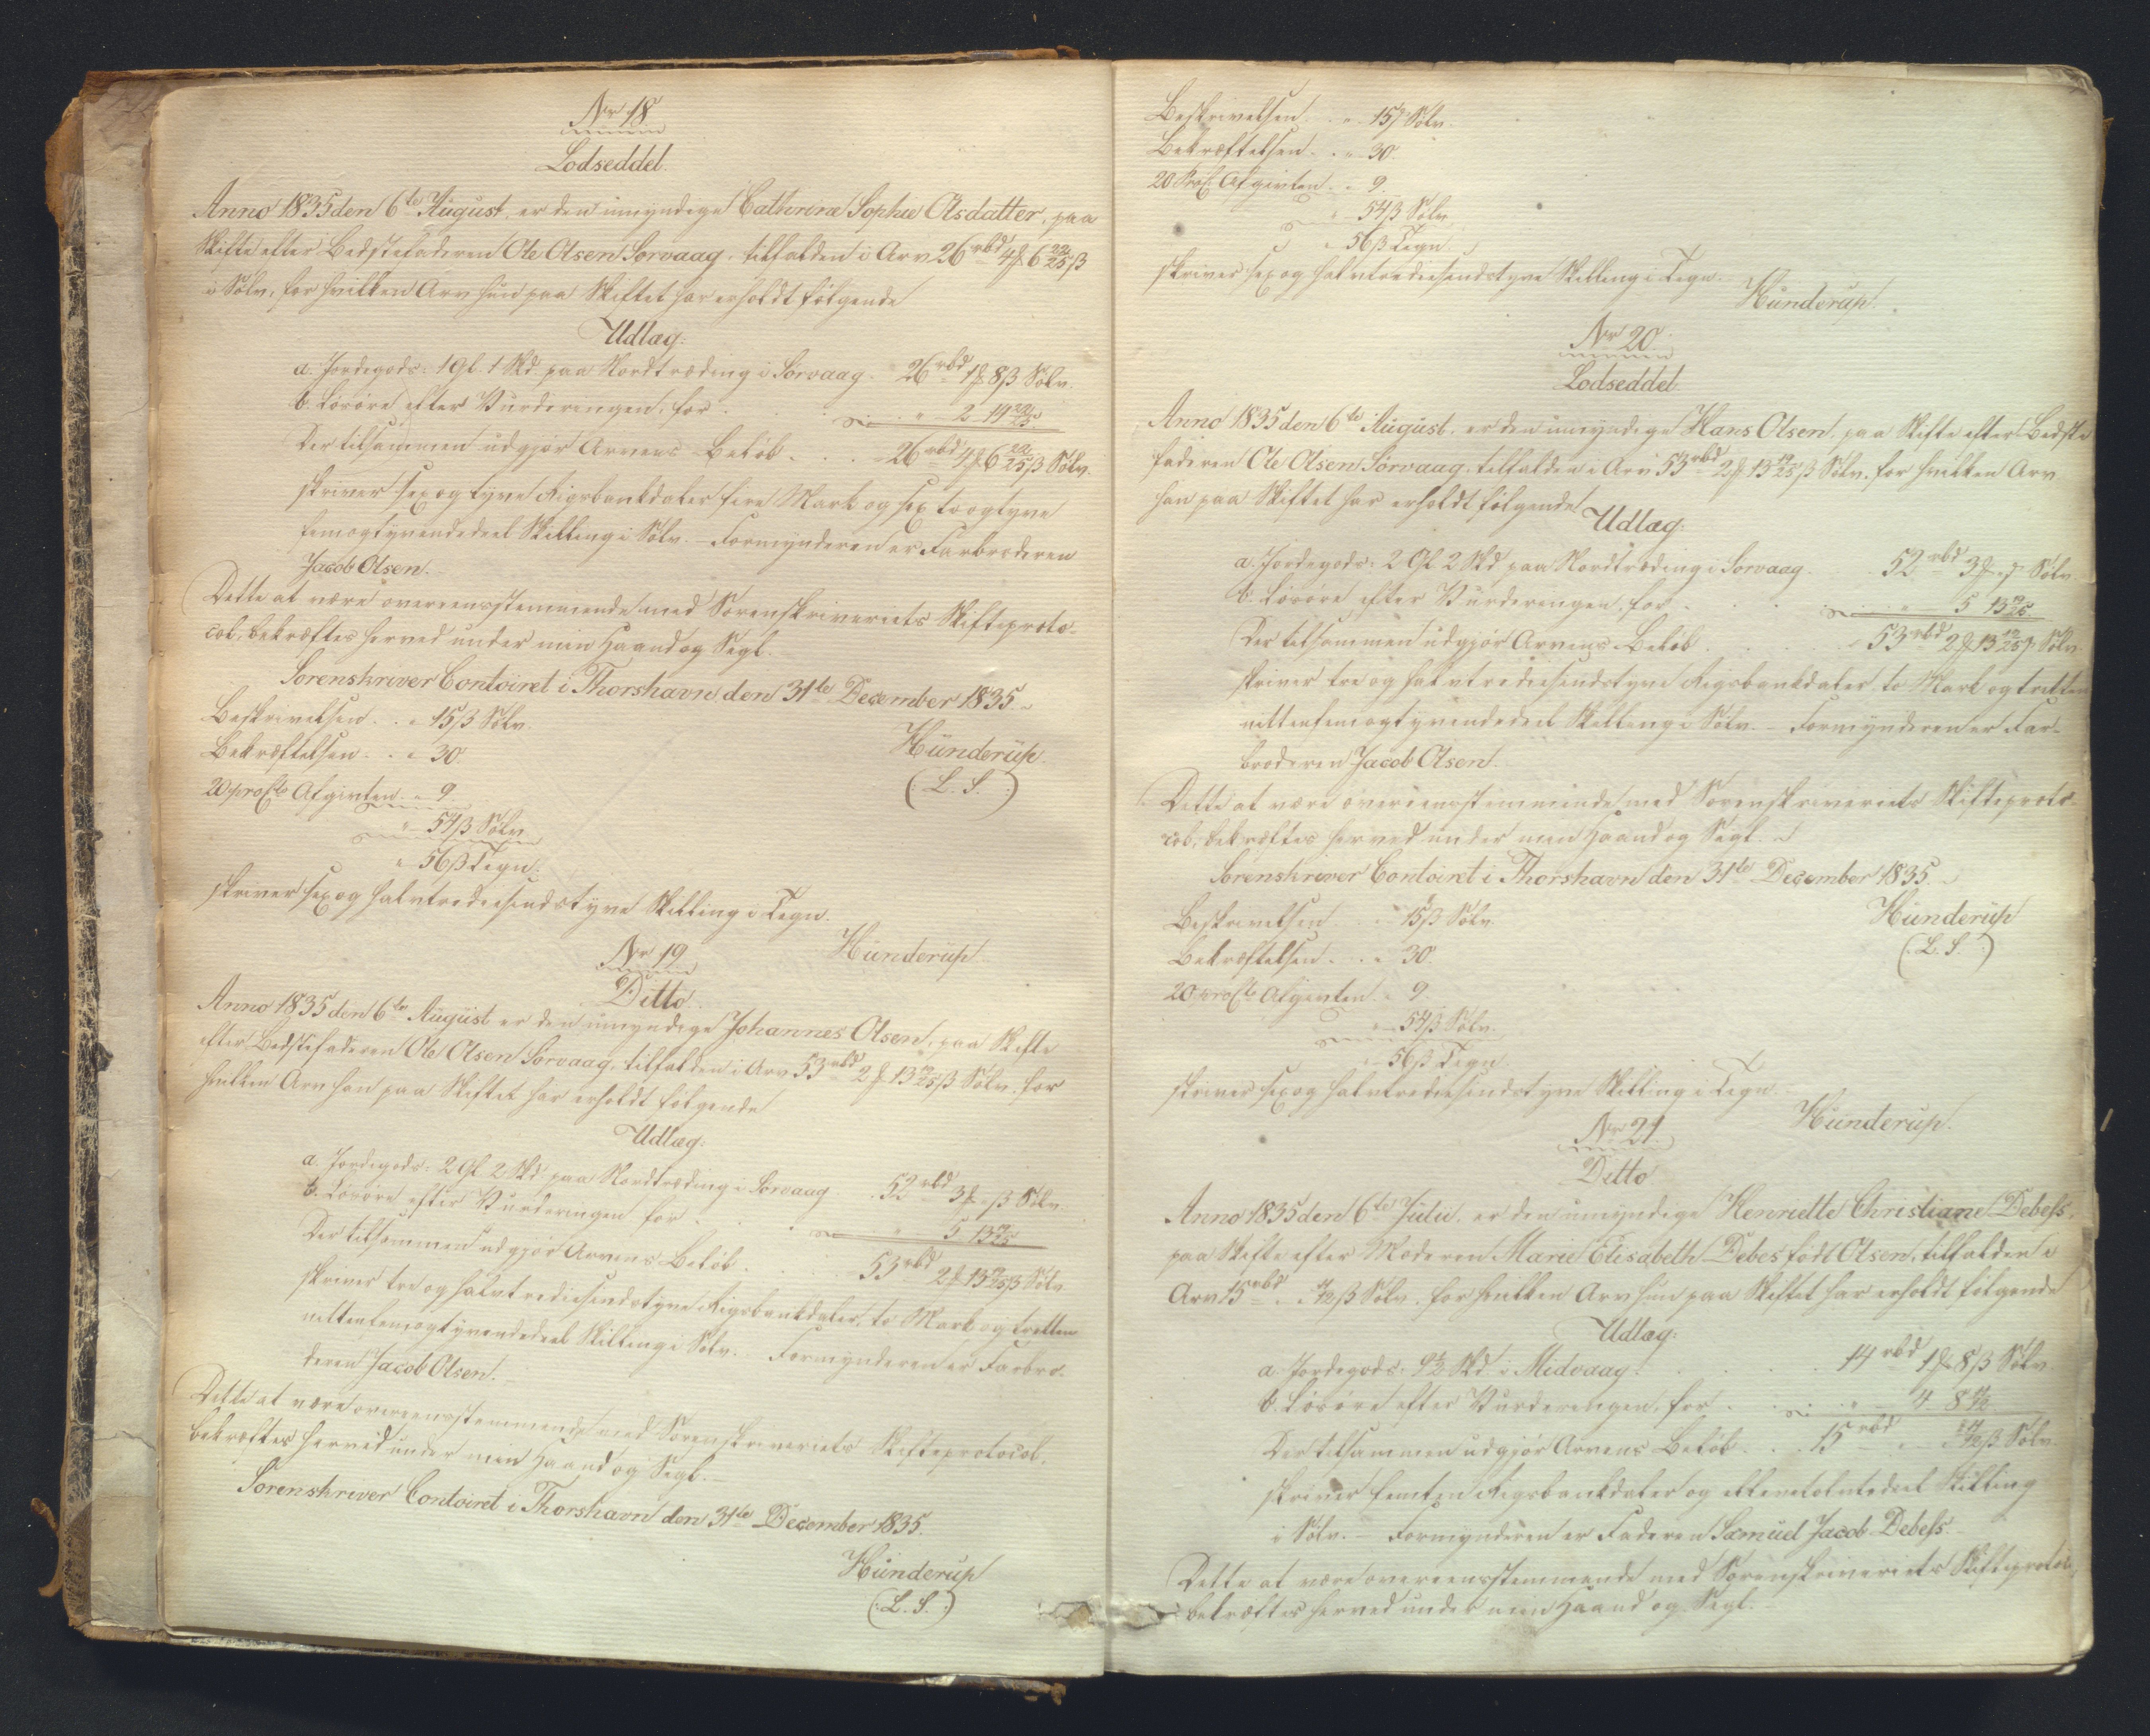 Nr 18
Lodseddel.
Anno 1835 den 6te August, er den umyndige Catherine Sophie Olsdatter, paa
Skifte efter Bedstefaderen Ole Olsen Sørvaag, tilfalden i Arv 26 rbd 4 ℔ 6 22/25 β
i Sølv, for hvilken Arv hun paa Skiftet har erholdt følgende
Udlæg:
a. Jordegods: 1 Gl. 1 Skd paa Nordtræding i Sørvaag. 26 rbd 1 ℔ 8 β Sølv.
b. Løsøre efter Vurderingen, for . . . „ – 2 – 14 22/25
Der tilsammen udgjør Arvens Beløb . . . 26 rbd 4 ℔ 6 22/25 β Sølv.
skriver sex og tyve Rigsbankdaler fire Mark og sex toogtyve
femogtyvendedeel Skilling i Sølv. – Formynderen er Farbroderen
Jacob Olsen.
Dette at være overeensstemmende med Sorenskriveriets Skifteproto-
col, bekræftes herved under min Haand og Segl. –
Sorenskriver Contoiret i Thorshavn den 31te December 1835.
Beskrivelsen . . „ 15 β Sølv.
Bekræftelsen . . „ 30.
Hunderup.
(L. S.)
20 proCto Afgivten „ 9
„ – 54 β Sølv
„ 56 β Tegn.
skriver sex og halvtrediesindstyve Skilling i Tegn.
Hunderup.
Nr 19
Ditto.
Anno 1835 den 6te August er den umyndige Johannes Olsen, paa Skifte
efter Bedstefaderen Ole Olsen Sørvaag, tilfalden i Arv 53 rbd 2 ℔ 13 19/25 β Sølv, for
hvilken Arv han paa Skiftet har erholdt følgende
Udlæg:
a. Jordegods: 2 Gl 2 Skd paa Nordtræding i Sørvaag . 52 rbd 3 ℔ „ β Sølv.
b. Løsøre efter Vurderingen for . . . „ – 5 13 19/25
Der tilsammen udgjør Arvens Beløb . . . 53 rbd 2 ℔ 13 19/25 β Sølv
skriver tre og halvtrediesindstyve Rigsbankdaler, to Mark og tretten
nittenfemogtyvendedeel Skilling i Sølv. Formynderen er Farbro-
deren Jacob Olsen.
Dette at være overeensstemmende med Sorenskriveriets Skifteprotocol,
bekræftes herved under min Haand og Segl. –
Sorenskriver Contoiret i Thorshavn den 31te December 1835.
Hunderup
(L. S.)
Beskrivelsen . . „ 15 β Sølv.
Bekræftelsen . . „ 30.
20 ProC. Afgivten . „ 9.
„ 54 β Sølv
„ 56 β Tegn.
skriver sex og halvtrediesindstyve Skilling i Tegn.
Hunderup.
Nr 20.
Lodseddel
Anno 1835 den 6te August, er den umyndige Hans Olsen, paa Skifte efter Bedste
faderen Ole Olsen Sørvaag, tilfalden i Arv 53 rbd 2 ℔ 13 19/25 β Sølv, for hvilken Arv
han paa Skiftet har erholdt følgende
Udlæg:
a. Jordegods: 2 Gl 2 Skd paa Nordtræding i Sørvaag . 52 rbd 3 ℔ „ β Sølv.
b. Løsøre efter Vurderingen, for . . . „ – 5 13 19/25
Der tilsammen udgjør Arvens Beløb . . . 53 rbd 2 ℔ 13 19/25 β Sølv.
skriver tre og halvtrediesindstyve Rigsbankdaler to Mark og tretten
nittenfemogtyvendedeel Skilling i Sølv. – Formynderen er Far-
broderen Jacob Olsen.
Dette at være overeensstemmende med Sorenskriveriets Skifteproto-
col, bekræftes herved under min Haand og Segl. –
Sorenskriver Contoiret i Thorshavn den 31te December 1835.
Beskrivelsen . . „ 15 β Sølv.
Bekræftelsen . . „ 30.
Hunderup
(L. S.)
20 proCto Afgivten . „ 9.
„ – 54 β Sølv.
„ 56 β Tegn.
skriver sex og halvtrediesindstyve Skilling i Tegn.
Hunderup.
Nr 21.
Ditto
Anno 1835 den 6te Julii, er den umyndige Henriette Christiane Debess,
paa Skifte efter Moderen Marie Elisabeth Debes født Olsen, tilfalden i
Arv 15 rbd „ „ 11/12 β Sølv, for hvilken Arv hun paa Skiftet har erholdt følgende
Udlæg:
a. Jordegods: 9 1/2 Skd i Midvaag . . . 14 rbd 1 ℔ 8 β Sølv.
b. Løsøre efter Vurderingen, for . . . „ – 4 8 11/12
Der tilsammen udgjør Arvens Beløb . . 15 rbd „ „ 11/12 β Sølv.
skriver femten Rigsbankdaler og ellevetolvtedeel Skilling
i Sølv. – Formynderen er Faderen Samuel Jacob Debess. –
Dette at være overeensstemmende med Sorenskriveriets Skifteprotocol,
bekræftes herved under min Haand og Segl. –